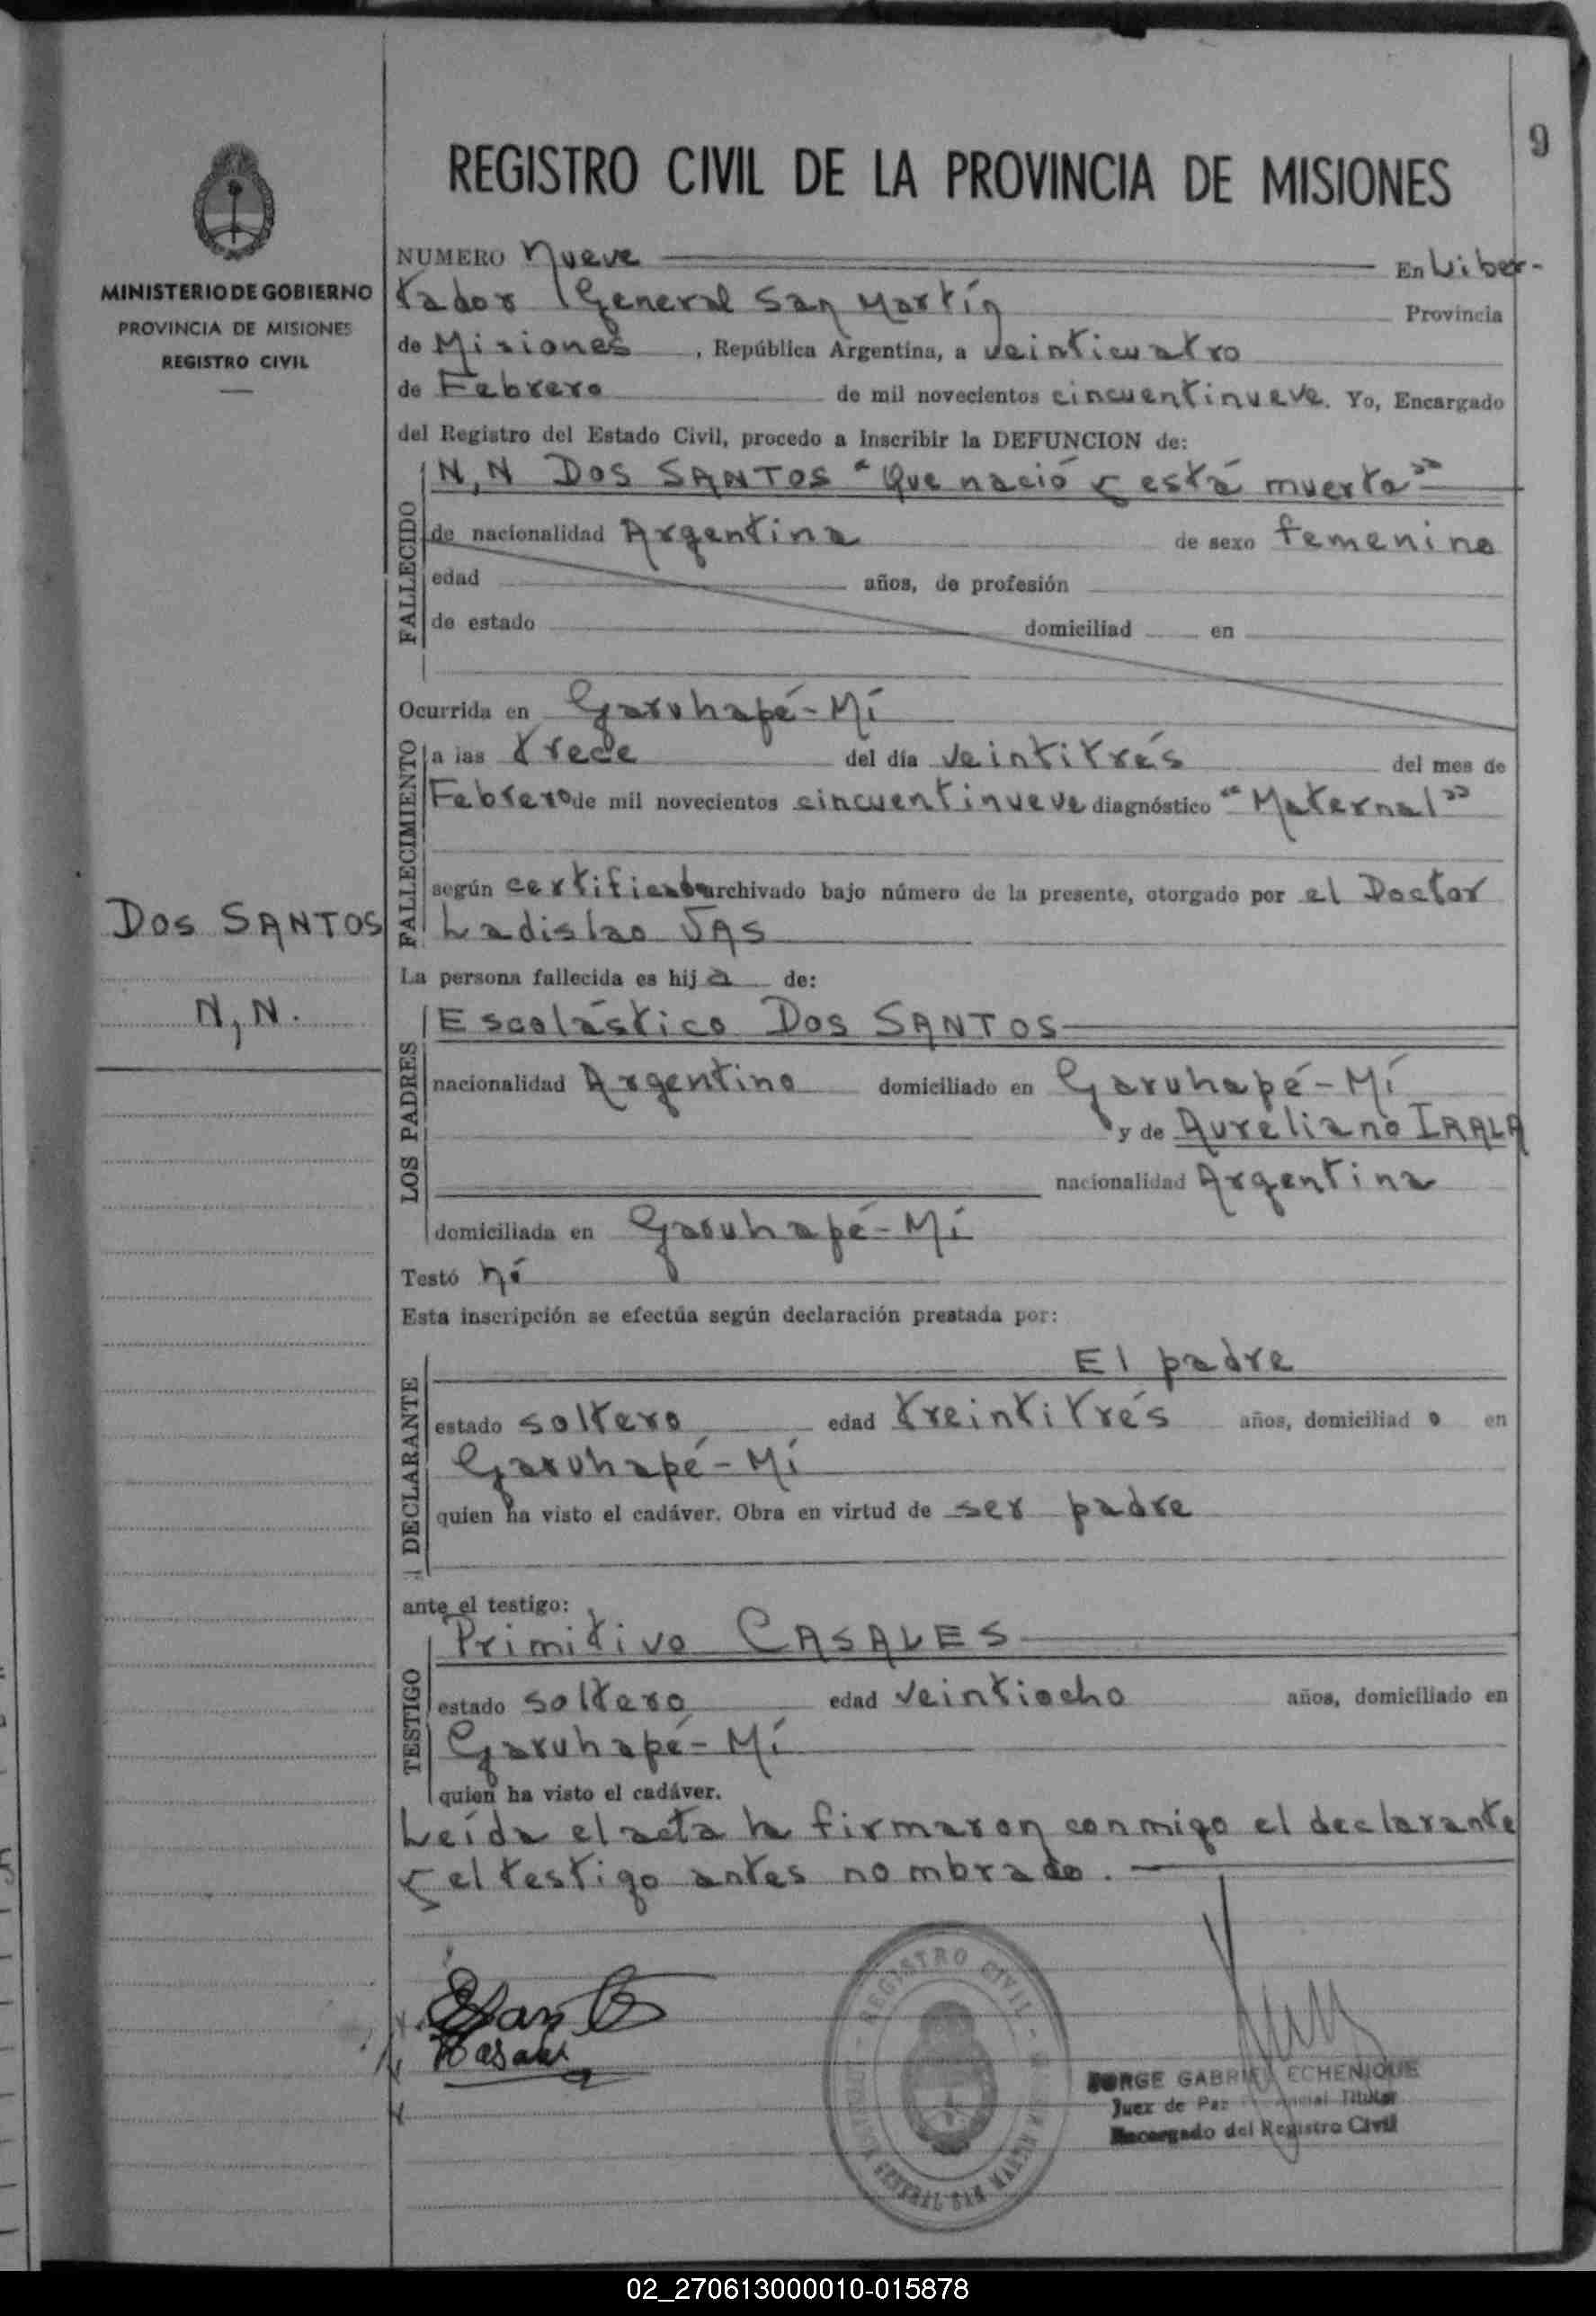 9
REGISTRO CIVIL DE LA PROVINCIA DE MISIONES
MINISTERIO DE GOBIERNO
PROVINCIA DE MISIONES
REGISTRO CIVIL
DOS SANTOS
N,N.
NUMERO Nueve En Liber-
tador General San Martín Provincia
de Misiones, República Argentina, a veinticuatro
de Febrero de mil novecientos cincuentinueve. Yo, Encargado
del Registro del Estado Civil, procedo a inscribir la DEFUNCION de:
FALLECIDO
N,N DOS SANTOS "Que nació y está muerta"
de nacionalidad Argentina de sexo femenino
edad años, de profesión
de estado domiciliad en
Ocurrida en Garuhapé-Mí
FALLECIMIENTO
a las trece del día veintitrés del mes de
Febrero de mil novecientos cincuentinueve diagnóstico "Maternal"
según certificado archivado bajo número de la presente, otorgado por el Doctor
Ladislao JAS
La persona fallecida es hija de:
LOS PADRES
Escolástico DOS SANTOS
nacionalidad Argentino domiciliado en Garuhapé-Mí
y de Aureliano IRALA
nacionalidad Argentina
domiciliada en Garuhapé-Mí
Testó nó
Esta inscripción se efectúa según declaración prestada por:
DECLARANTE
El padre
estado soltero edad treintitrés años, domiciliado en
Garuhapé-Mí
quien ha visto el cadáver. Obra en virtud de ser padre
ante el testigo:
TESTIGO
Primitivo CASALES
estado soltero edad veintiocho años, domiciliado en
Garuhapé-Mí
quien ha visto el cadáver.
Leída el acta la firmaron conmigo el declarante
y el testigo antes nombrado.
REGISTRO CIVIL
GENERAL SAN MARTIN
JORGE GABRIEL ECHENIQUE
Juez de Paz Titular
Encargado del Registro Civil
02_270613000010-015878